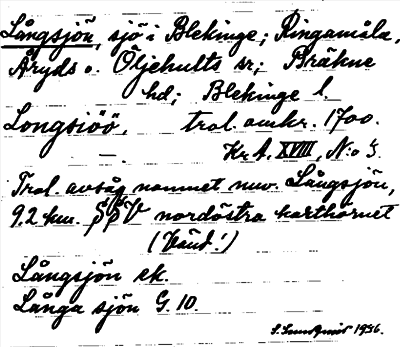 Långsjön, sjö i Blekinge; Ringamåla,
Åryds o. Öljehults sr; Bräkne
hd; Blekinge l.
Longsiöö, trol. omkr. 1700.
Kr. A. XVIII, N:o 5.
Trol. avsåg namnet nuv. Långsjön,
9.2 km. SSV nordöstra karthörnet
(Vänd!)
Långsjön ek.
Långa sjön G. 10.
S. Lundqvist 1936.